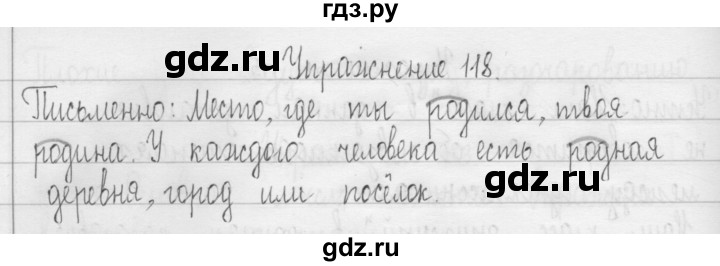 гдз.ру
gdz.ru
Упражнение 118.
Письменно: Место, где ты родился, твоя
gdz.ru
родина. У каждого человека есть родная
деревня, город или посёлок.
gdz.ru
gdz.ru